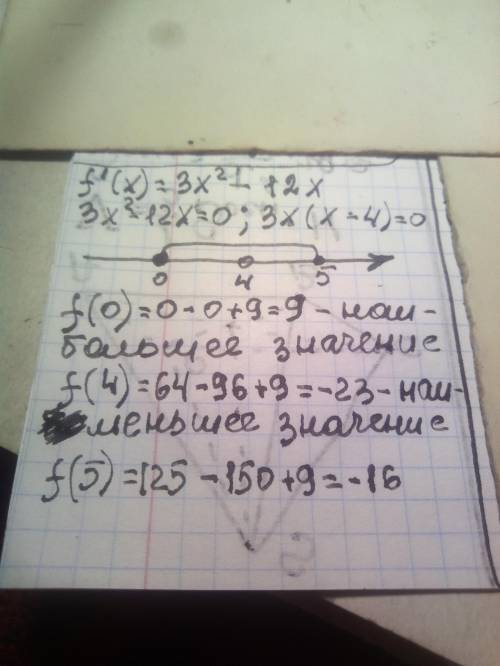 f'(x) = 3x² - 12x
3x² - 12x = 0; 3x(x - 4) = 0
0 4 5
f(0) = 0 - 0 + 9 = 9 - наи-
большее значение
f(4) = 64 - 96 + 9 = -23 - наи-
меньшее значение
f(5) = 125 - 150 + 9 = -16